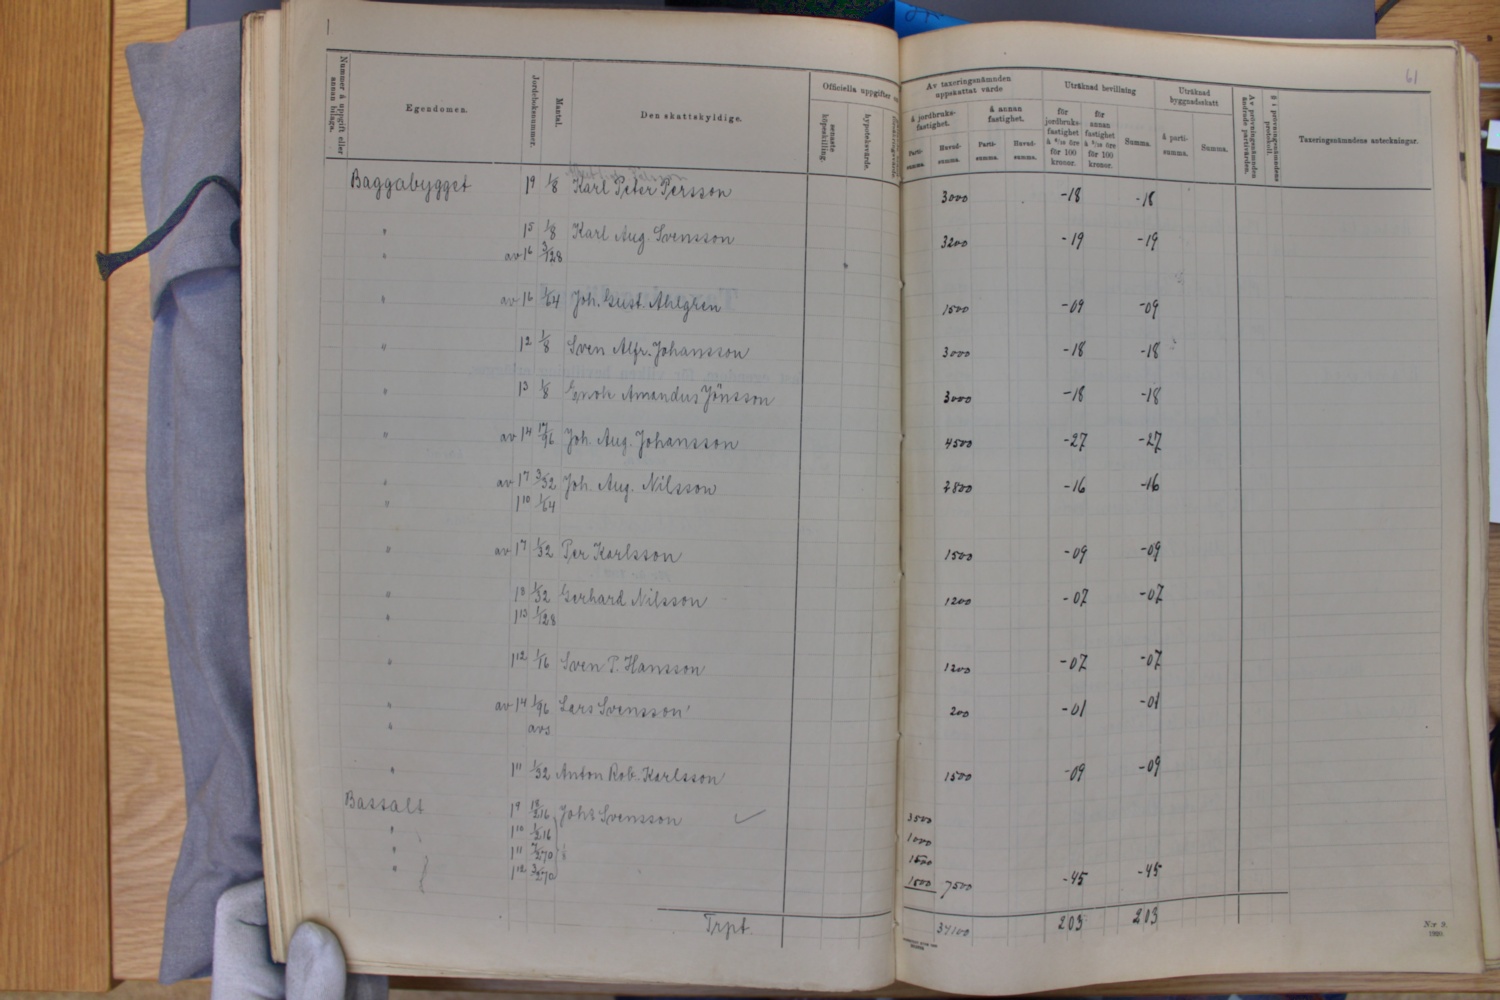 61
Nummer å uppgift eller annan bilaga.
Egendomen.
Jordeboksnummer.
Mantal.
Den skattskyldige.
Officiella uppgifter
senaste köpeskilling.
hypoteksvärde.
Av taxeringsnämnden uppskattat värde
å jordbruks-fastighet.
å annan fastighet.
Parti-summa.
Huvud-summa.
Parti-summa.
Huvud-summa.
Uträknad bevillning
för jordbruks-fastighet
för 100 kronor.
för annan fastighet
för 100 kronor.
Summa.
Uträknad byggnadsskatt
å parti-summa.
Summa.
Av prövningsnämnden ändrade partivärden.
§ i prövningsnämndens protokoll.
Taxeringsnämndens anteckningar.
Baggabygget 1⁹ 1/8 Karl Peter Persson 3000 -18 -18
" 1⁵ 1/8 Karl Aug. Svensson 3200 -19 -19
" av 1⁶ 3/128
" av 1⁶ /64 Joh. Gust. Ahlgren 1500 -09 -09
" 1² 1/8 Sven Alfr. Johansson 3000 -18 -18
" 1³ 1/8 Enok Amandus Jönsson 3000 -18 -18
" av 1⁴ 17/96 Joh. Aug. Johansson 4500 -27 -27
" av 1⁷ 3/32 Joh. Aug. Nilsson 2800 -16 -16
" 1¹⁰ 1/64
" av 1⁷ 1/32 Per Karlsson 1500 -09 -09
" 1⁸ 1/32 Gerhard Nilsson 1200 -07 -07
" 1¹³ 1/128
" 1¹² 1/16 Sven P. Hansson 1200 -07 -07
" av 1⁴ 1/96 Lars Svensson 200 -01 -01
"
" 1¹¹ 1/32 Anton Rob. Karlsson 1500 -09 -09
Bassalt 1⁹ /216 Johs Svensson 3500
" 1¹⁰ 1/216 1000
" 1¹¹ 7/270 1500
" 1¹² 3/270 1500 7500 -45 -45
Trpt. 34100 203 203
N:r 9.